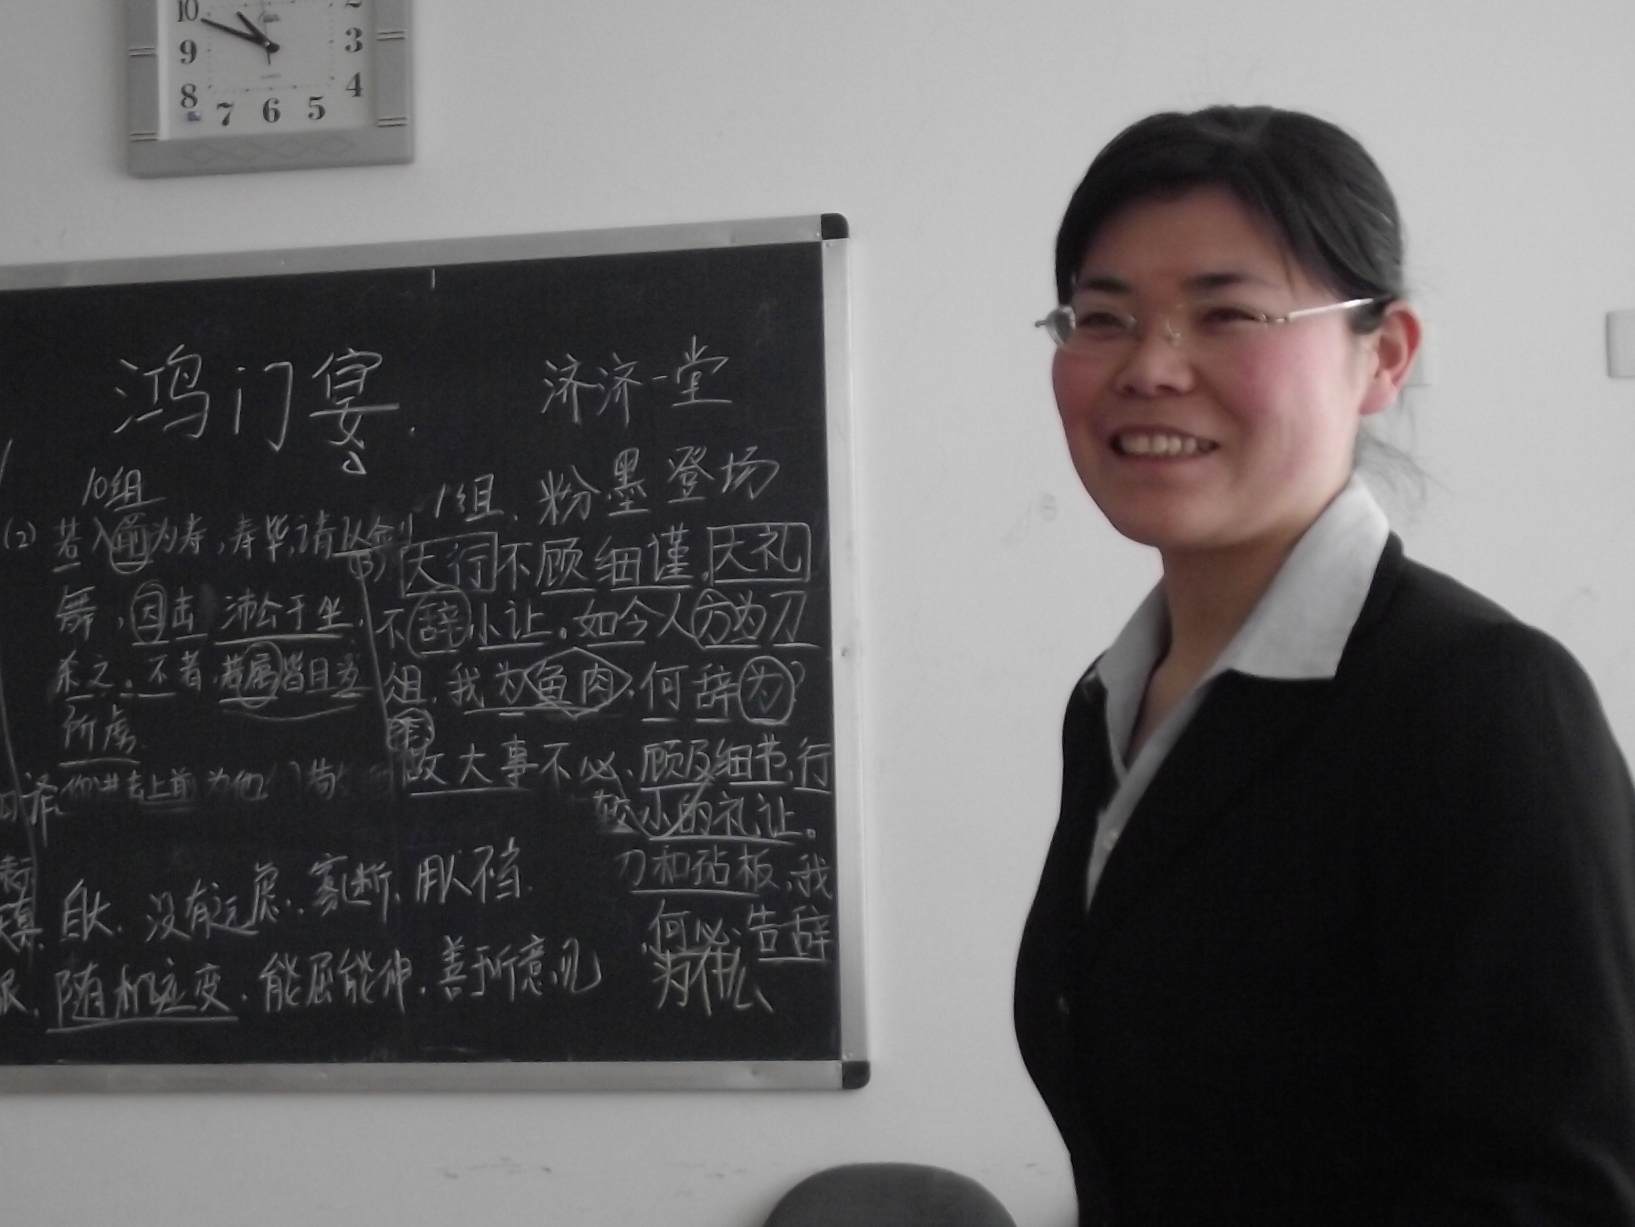 10
9
8
7
6
5
4
3
2
鸿门宴. 济济一堂
10组
(2) 若入前为寿,寿毕,请以剑
舞,因击沛公于坐,
杀之。不者,若属皆且为
所虏.
译:
自大. 没有远虑. 寡断. 用人不当.
随机应变. 能屈能伸. 善于听意见
1组. 粉墨登场
大行不顾细谨,大礼
不辞小让。如今人方为刀
俎,我为鱼肉,何辞为?
做大事不必顾及细节,行
较小的礼让。
刀和砧板,我
何必告辞
为什么